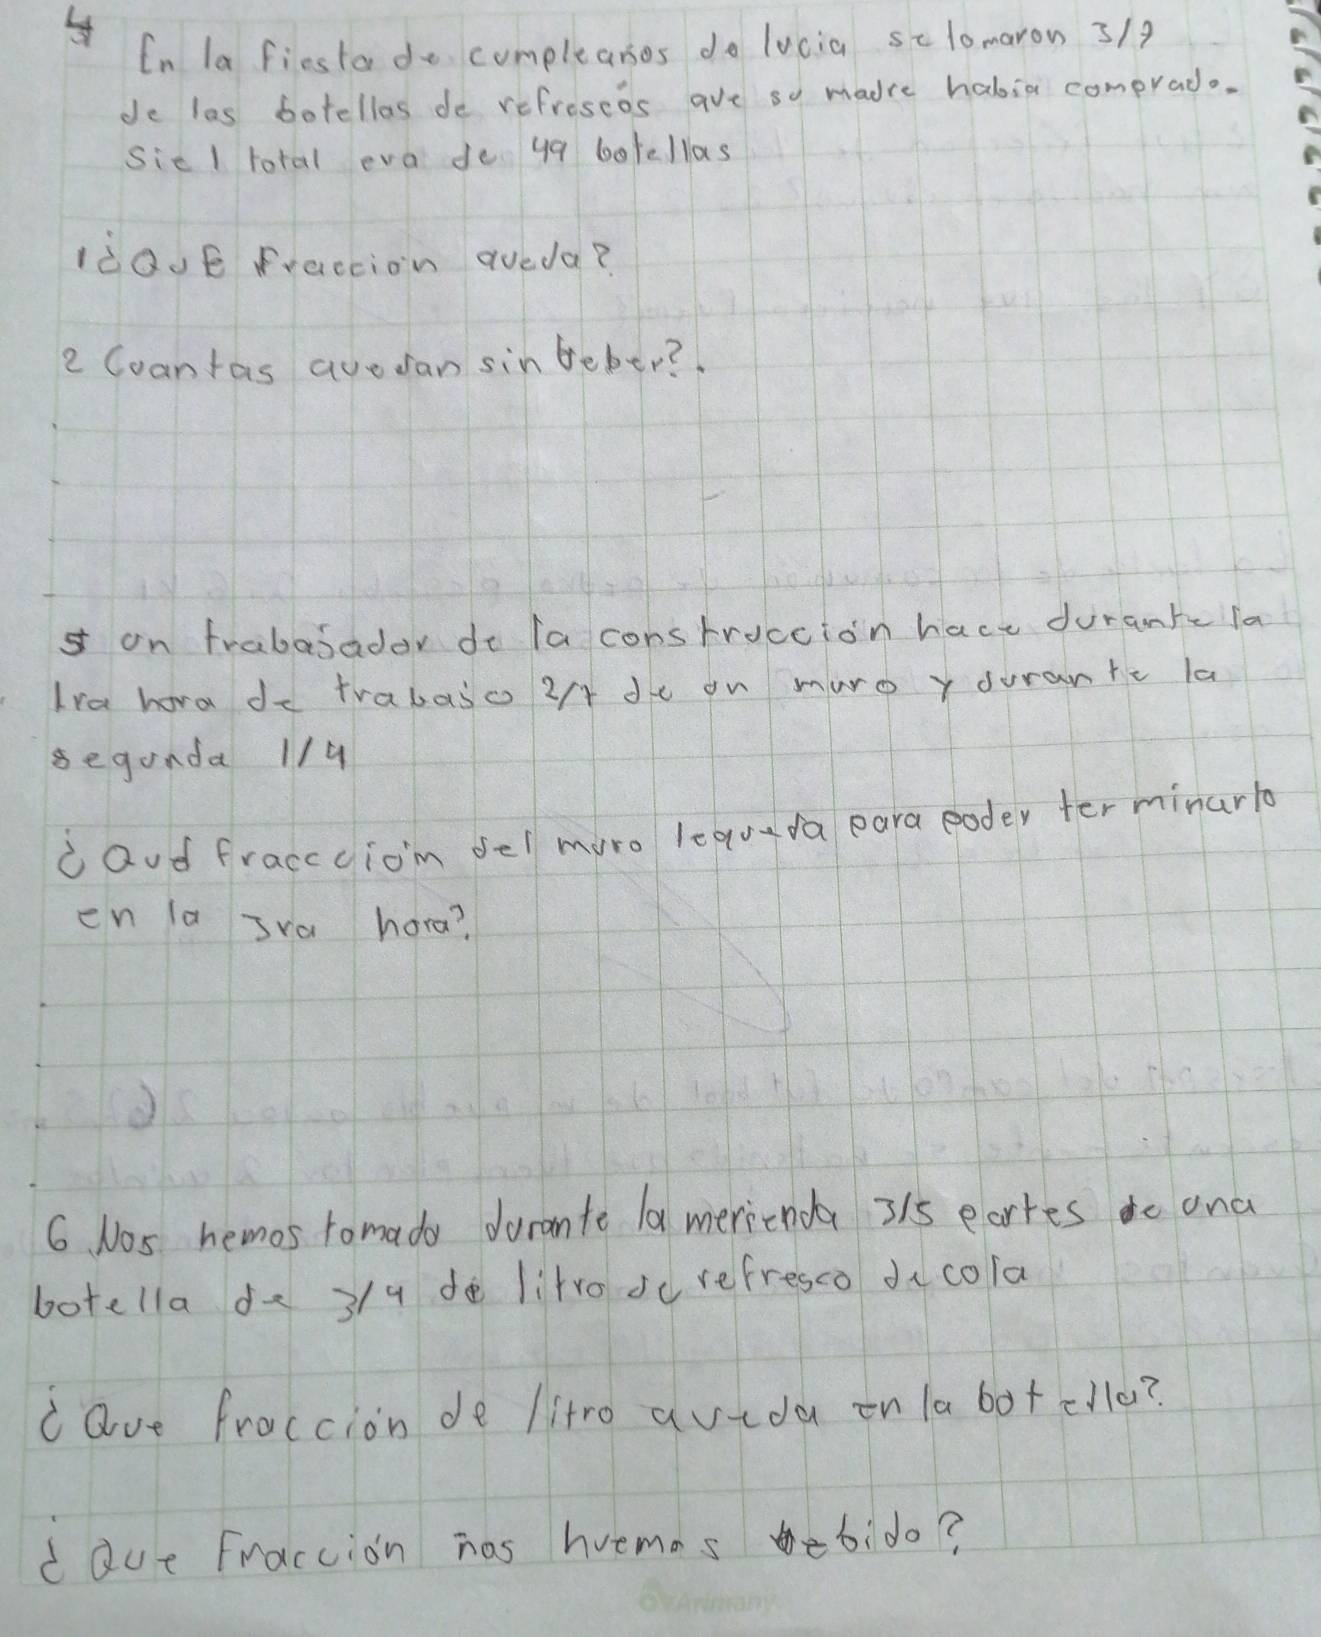 4
En la fiesta de cumpleaños de lucia se tomaron 3/7
de las botellas de refrescos que su madre habia comprado.
Si el total era de 49 botellas
1 ¿QuE fraccion queda?
2 Cuantas quedan sin beber?.
5 un trabajador de la construcción hace durante la
1ra hora de trabajo 2/7 de un muro y durante la
segunda 1/4
¿Qué fraccción del muro le queda para poder terminarlo
en la 3ra hora?
6 Nos hemos tomado durante la merienda 3/5 partes de una
botella de 3/4 de litro de refresco de cola
¿Que fracción de litro queda en la botella?
¿Que Fracción nos huemos bebido?
Arimany